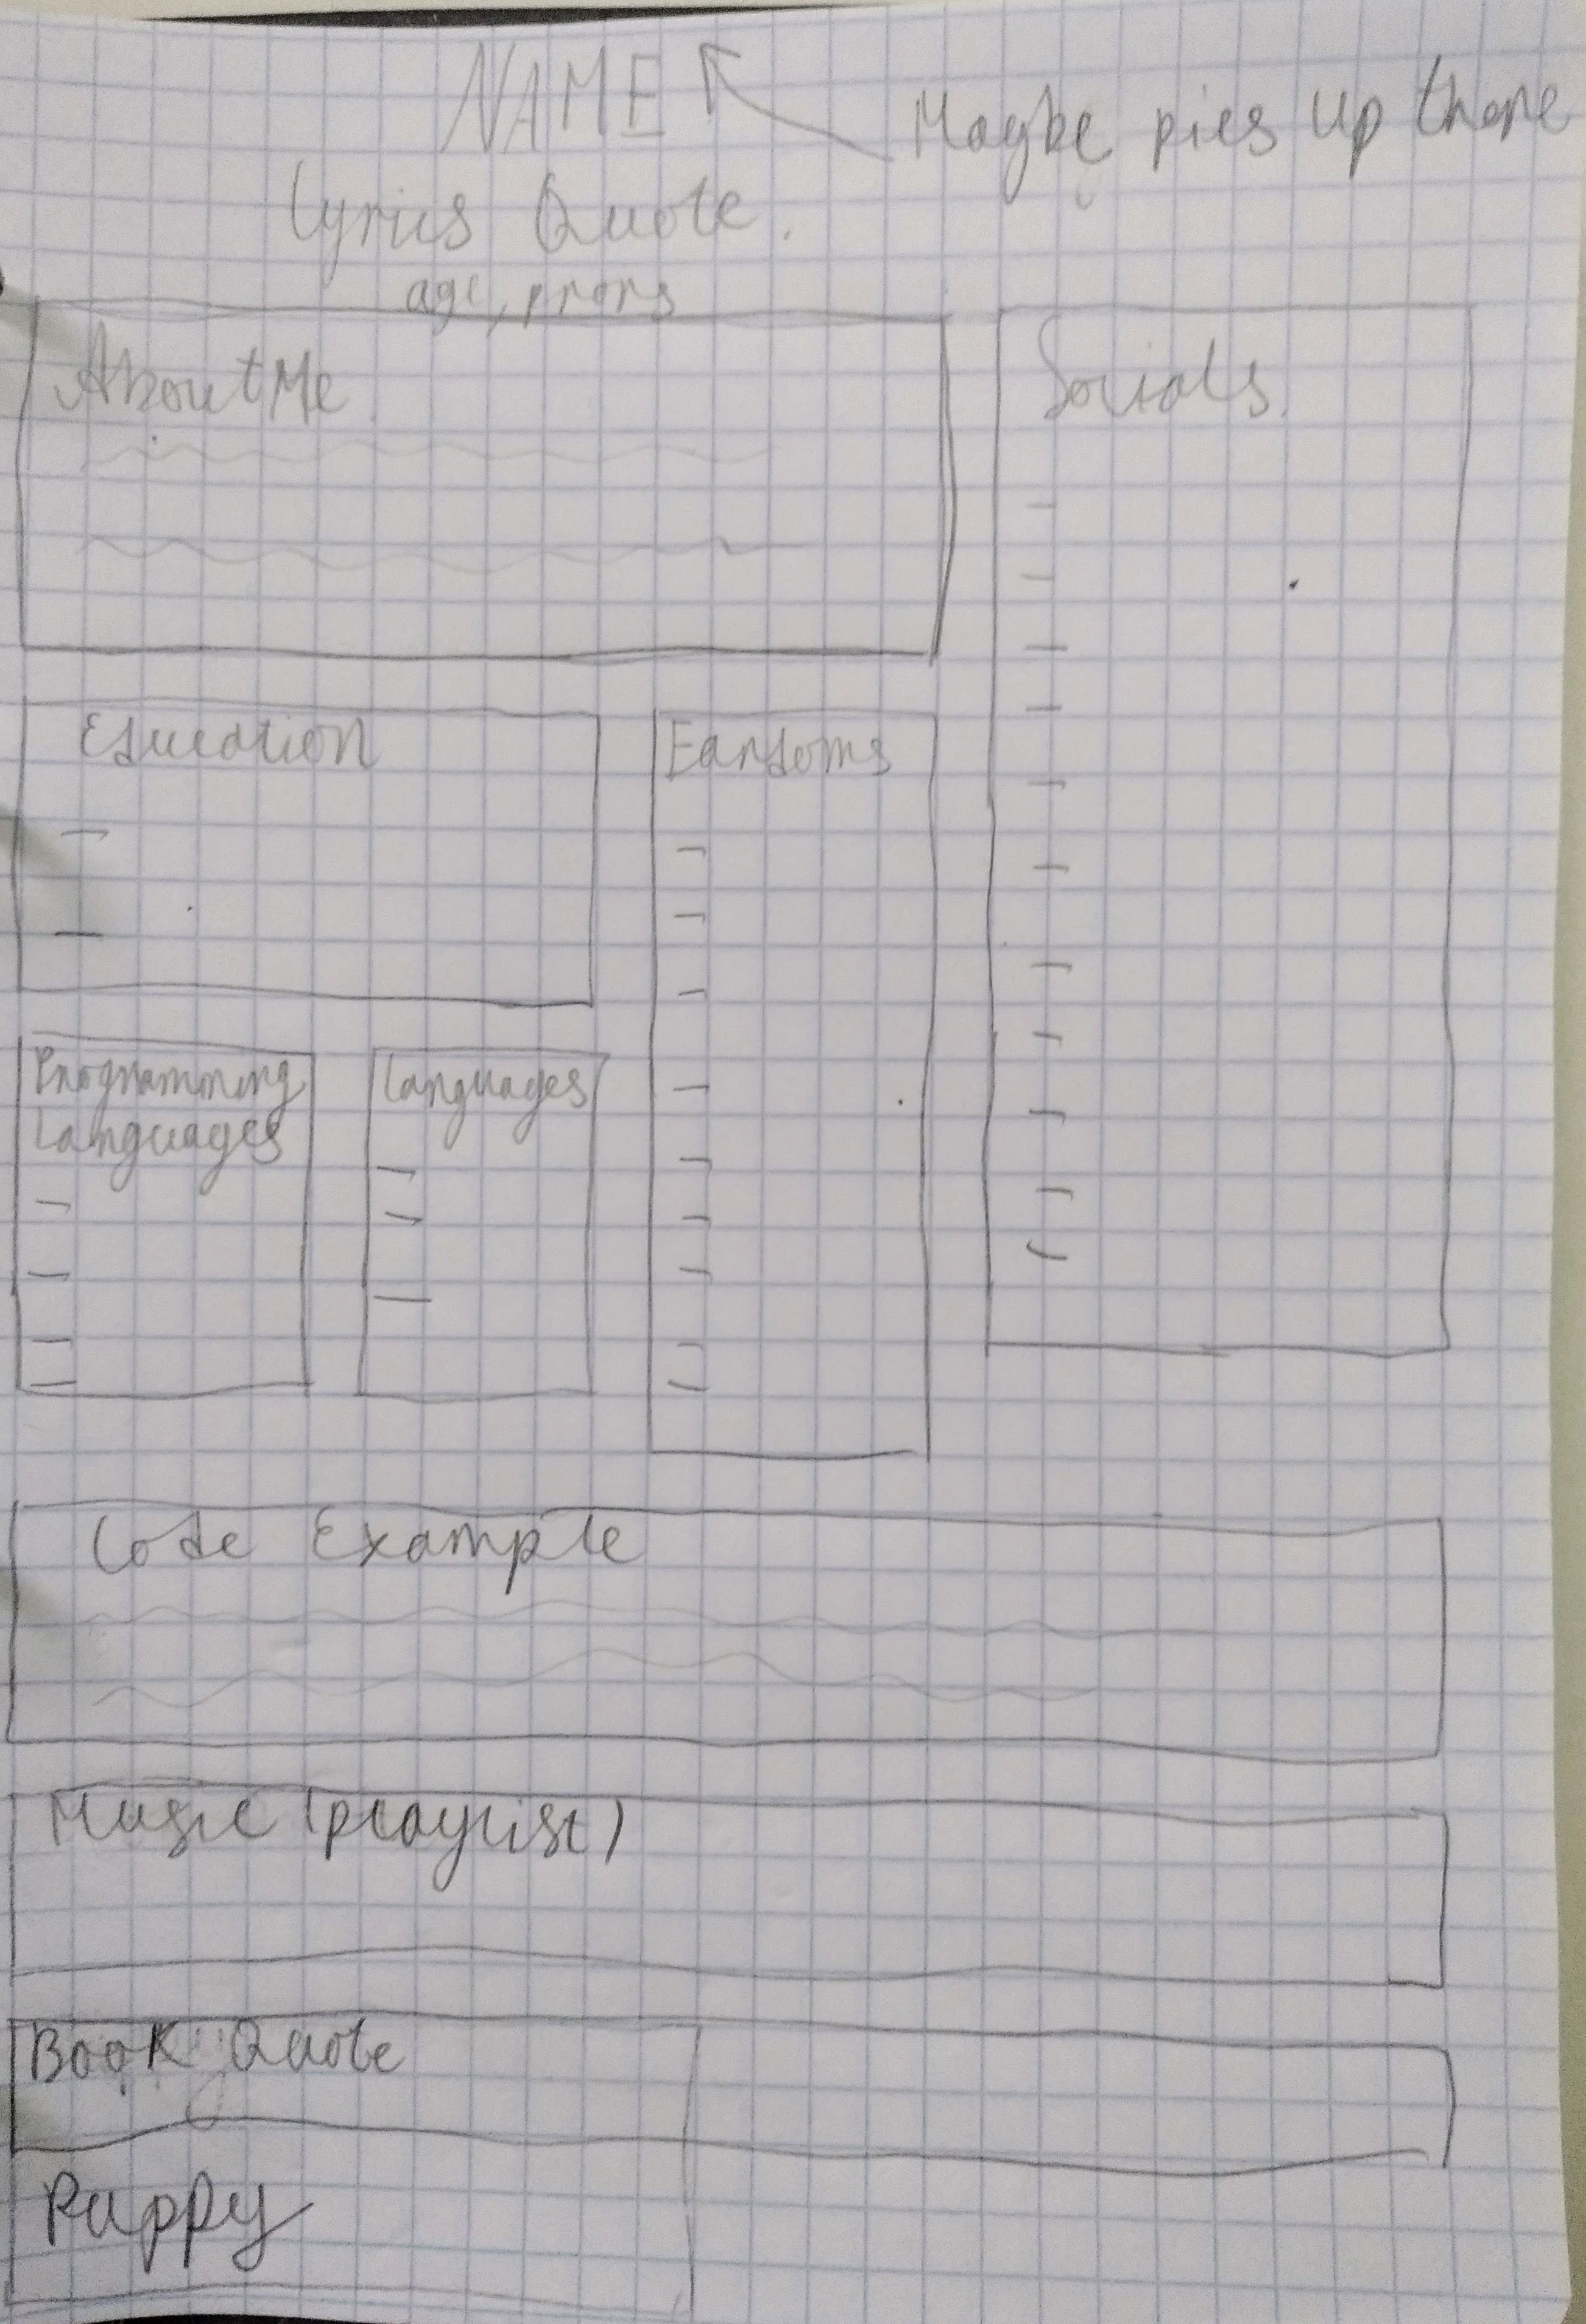 NAME
Maybe pics up there
Lyrics Quote.
age, prons
About Me
Socials.
Education
Fandoms
Programming
Languages
Languages
Code Example
Music (playlist)
Book Quote
Puppy